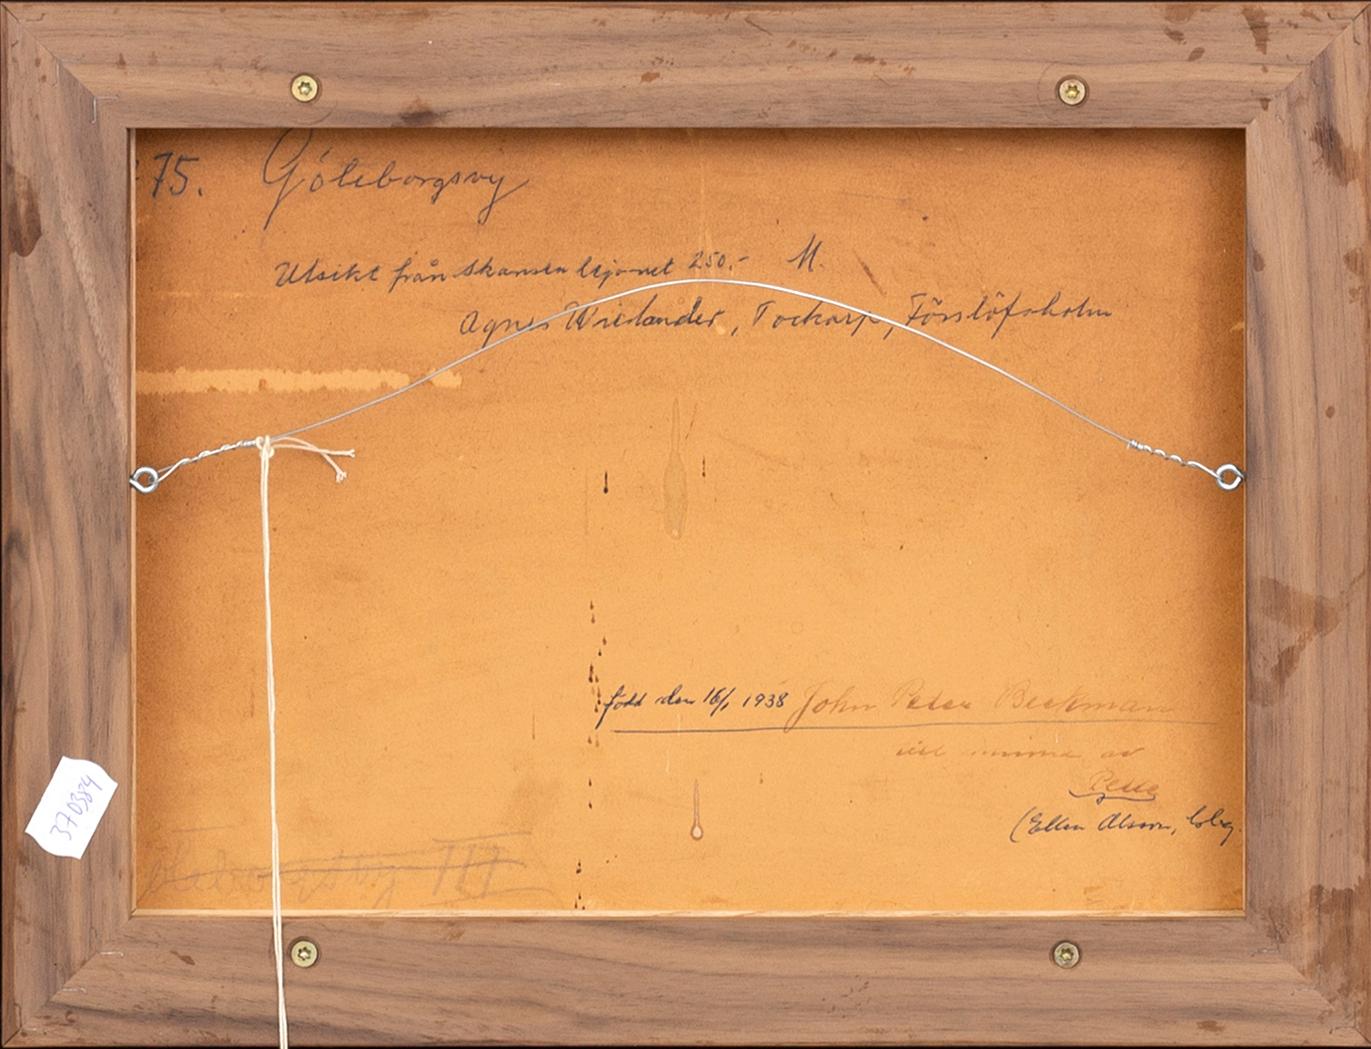 75. Göteborgsvy
Utsikt från Skansen lejonet 250.- M.
Agnes Wieslander, Tockarp, Förslöfsholm
född den 16/1 1938 John Peter Beckman
av
Pelle
(Ellen Olsson, Gbg.
Göteborgsvy III
370384